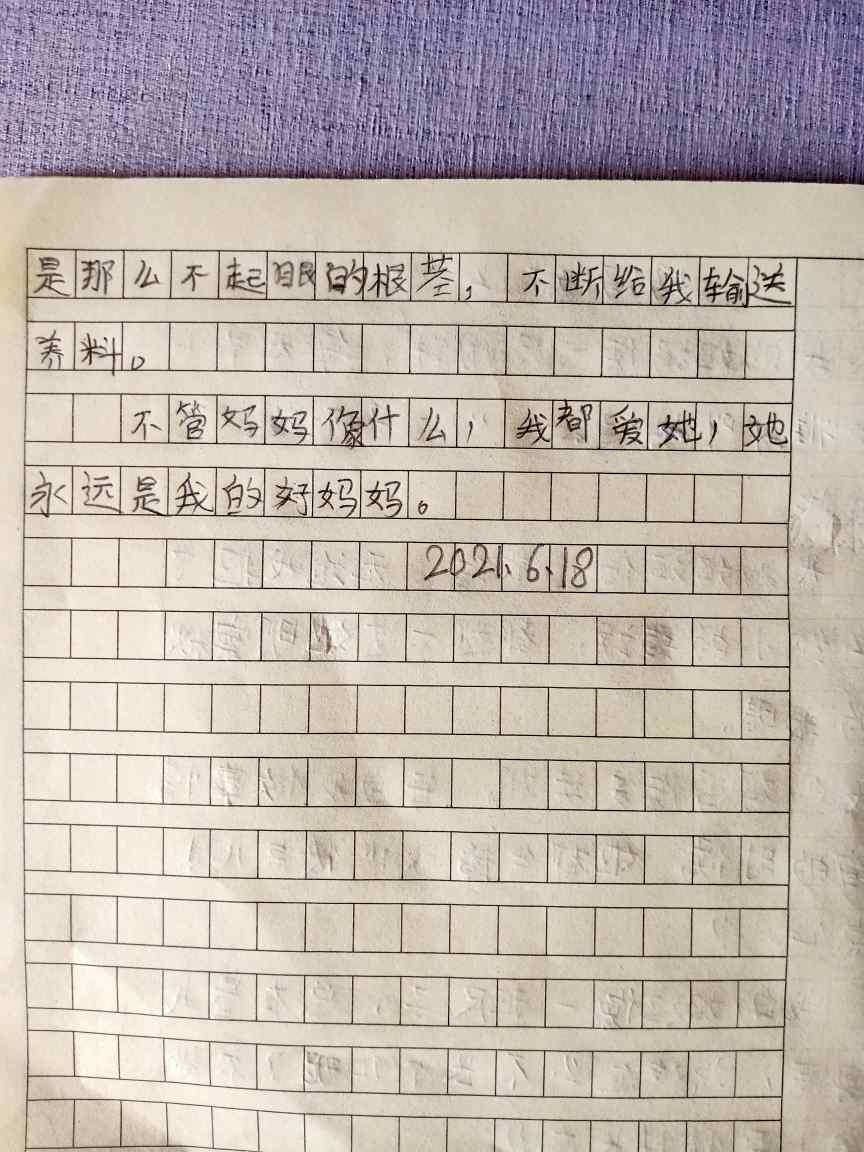 是那么不起眼的根茎，不断给我输送
养料。
不管妈妈像什么，我都爱她，她
永远是我的好妈妈。
2021.6.18